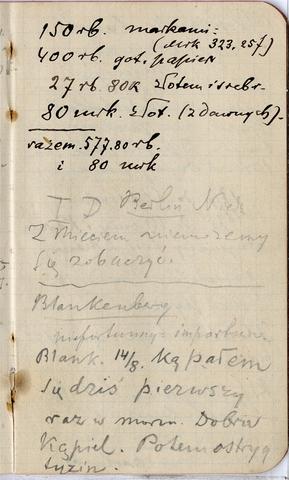 150 rb. markami:
(mrk 323.25f)
400 rb. got. papier
27 rb. 80k złotem i srebr.
80 mrk. złot. (z dawnych).
razem. 577.80 rb.
i 80 mrk
I D Berlin
Z Mieciem niemożemy
się zobaczyć.
Blankenberg
Blank. 14/8. Kąpałem
się dziś pierwszy
raz w morzu. Dobra
Kąpiel. Potem ostryg
tuzin.